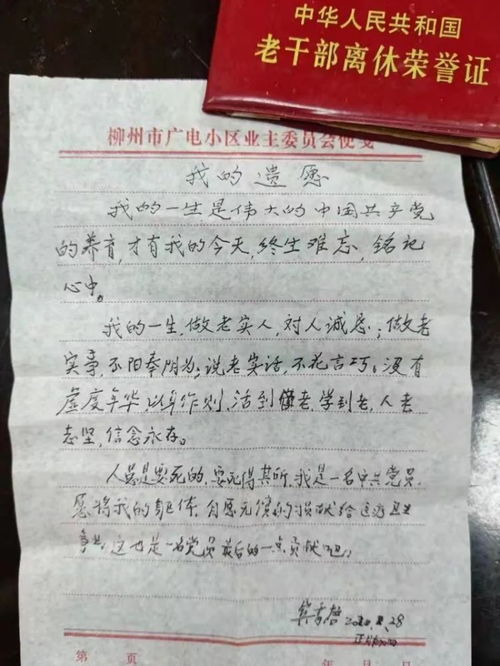 中华人民共和国
老干部离休荣誉证
柳州市广电小区业主委员会便笺
我的遗愿
我的一生是伟大的中国共产党
的养育,才有我的今天,终生难忘,铭记
心中。
我的一生,做老实人,对人诚恳;做老
实事,不阳奉阴为;说老实话,不花言巧。没有
虚度年华,以身作则,活到老,学到老,人老
志坚,信念永存。
人总是要死的,要死得其所,我是一名中共党员,
愿将我的躯体,自愿无偿的捐献给医疗卫生
事业,这也是一名党员最后的一点贡献吧!
28
第 页 年 月 日